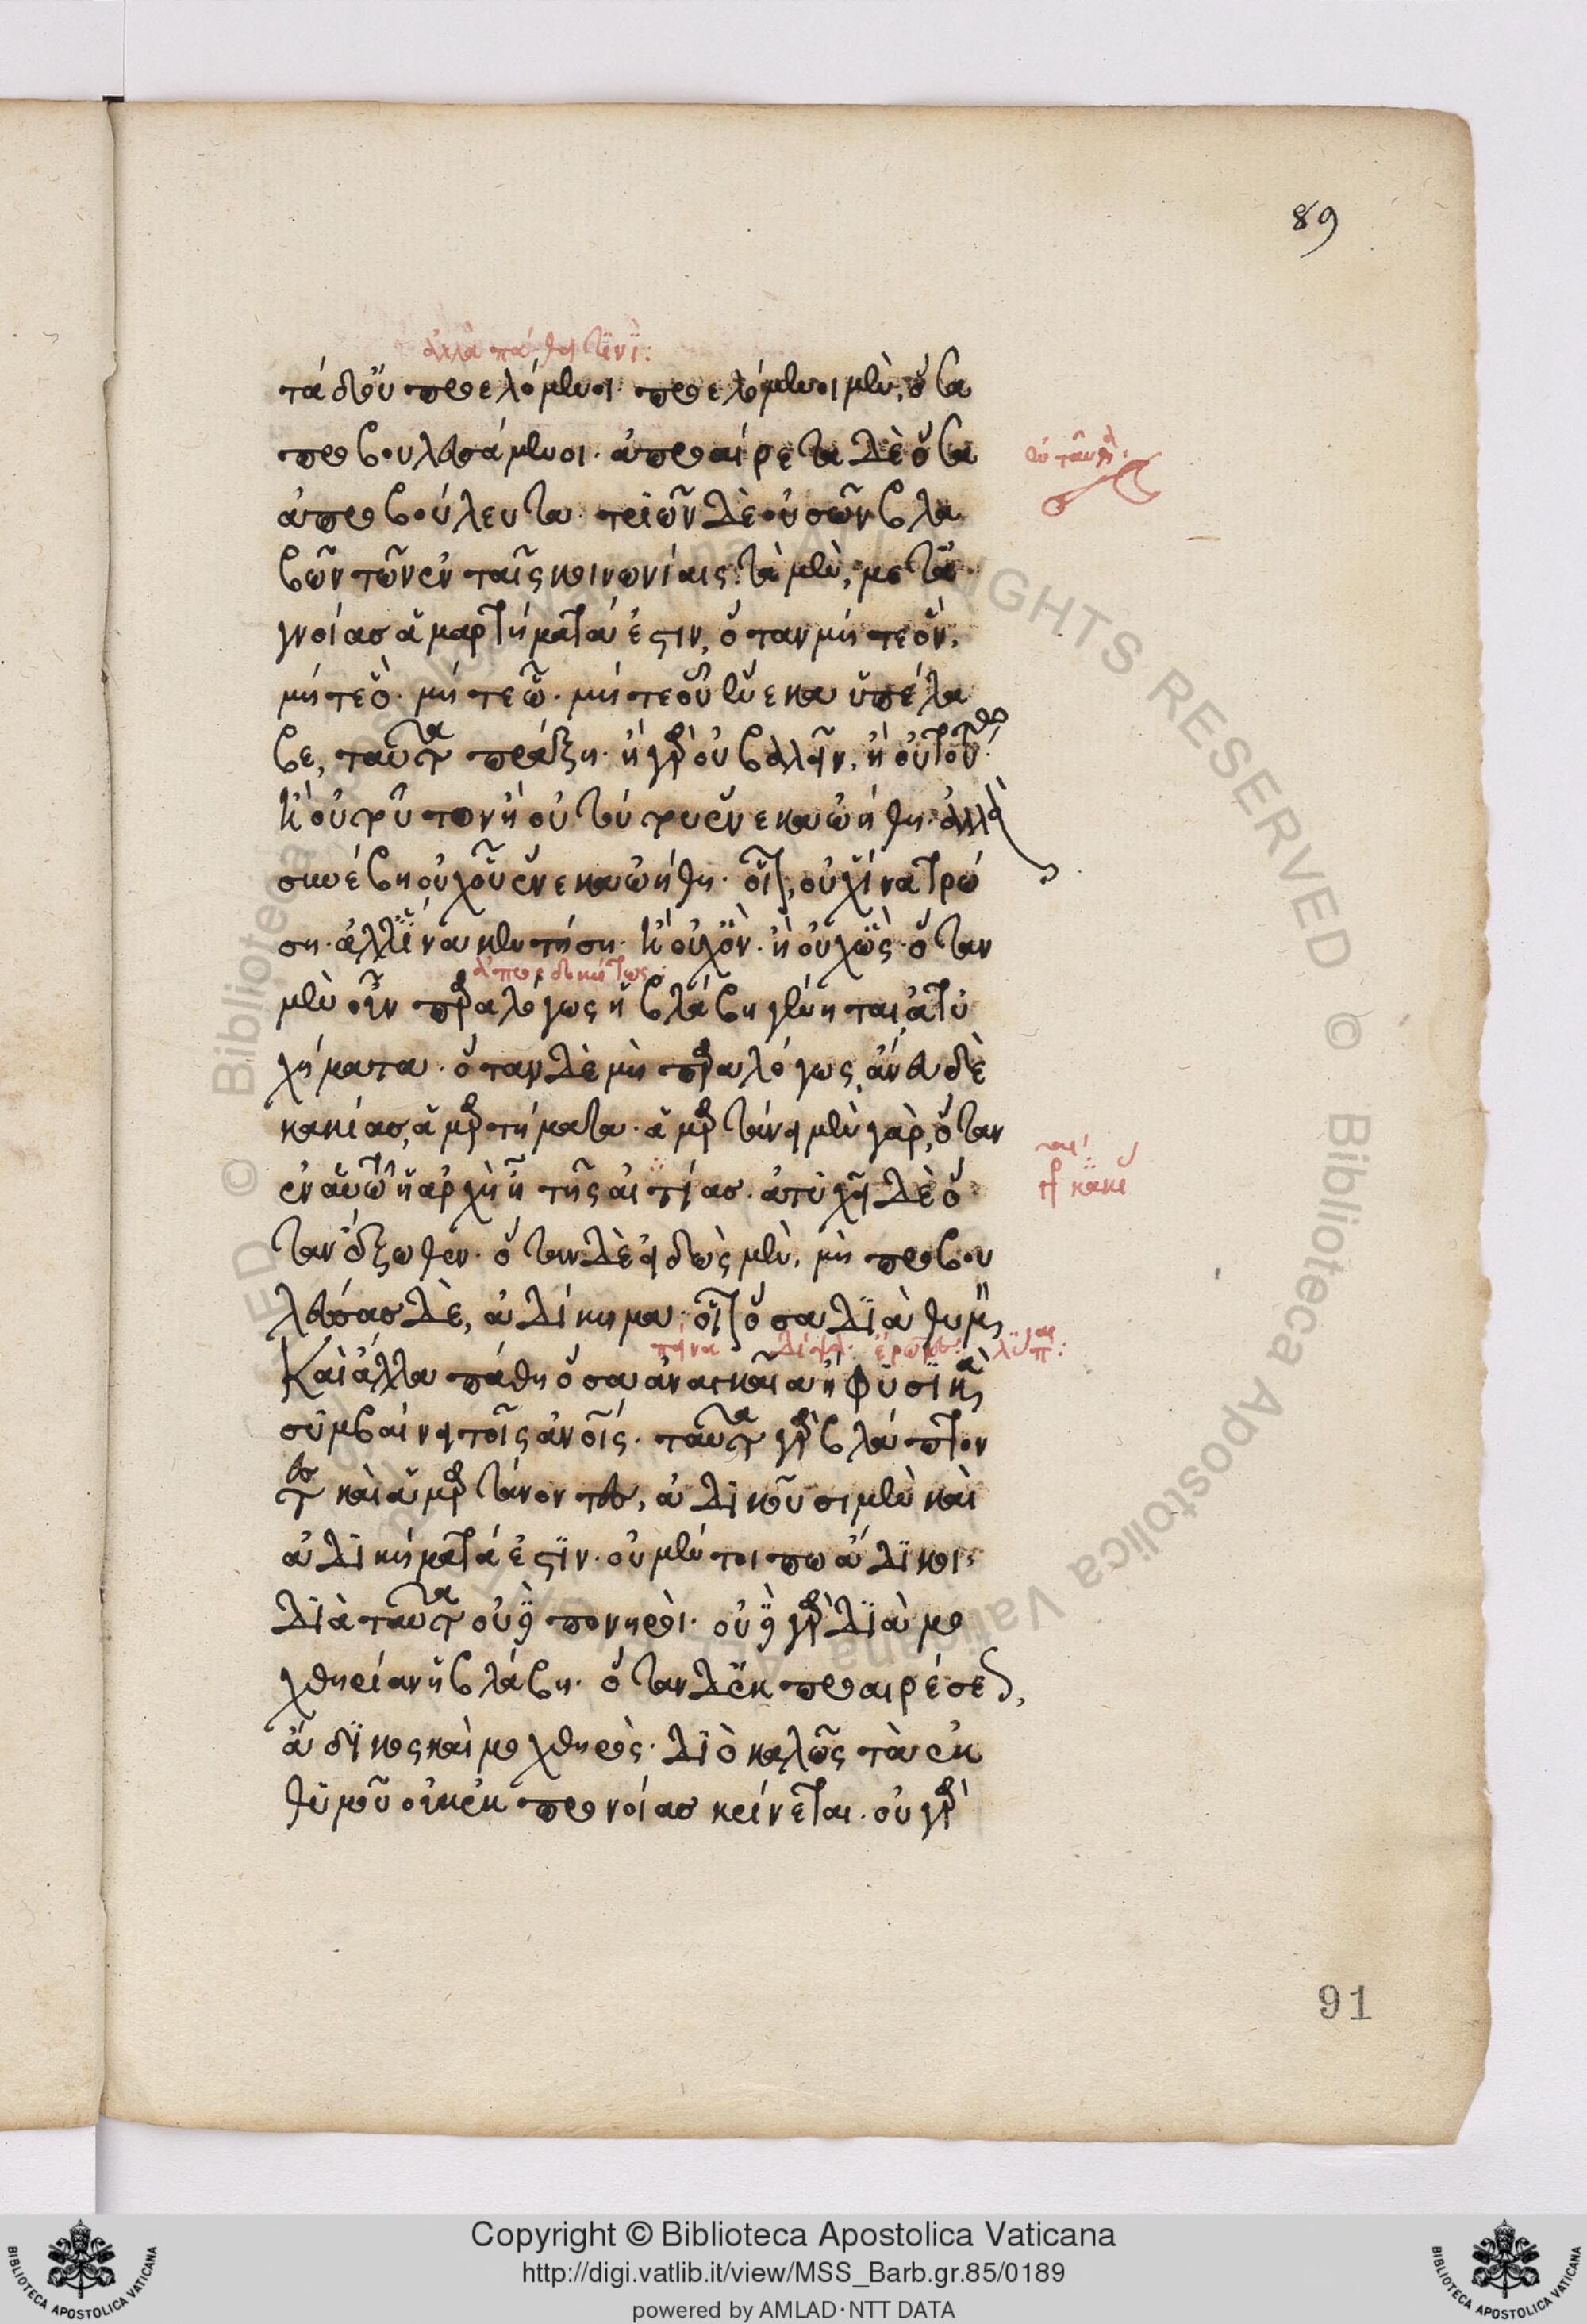 89
ἀλλὰ πάθει τινί:
τὰ δ' οὐ προελόμενοι· προελόμενοι μὲν, ὅσα
προβουλευσάμενοι· ἀπροαίρετα δὲ ὅσα
ἀπροβούλευτα· τριῶν δὲ οὐσῶν βλα
βῶν τῶν ἐν ταῖς κοινωνίαις· τὰ μὲν, μετὰ
γνοίασ ἁμαρτήματά ἐστιν, ὅταν μήτε ὃν,
μήτε ὃ· μήτε ᾧ· μήτε οὗ ἕνεκα ὑπέλα
βε, ταῦτα πράξη· ἢ γὰρ οὐ βαλεῖν, ἢ οὐ τοῦτον
ἢ οὐ τούτῳ ἢ οὐ τούτου ἕνεκα ὠήθη· ἀλλὰ
συνέβη οὐχ οὗ ἕνεκα ὠήθη· οἷον, οὐχ ἵνα τρώ
ση· ἀλλ' ἵνα κεντήση· ἢ οὐχ ὃν· ἢ οὐχ ὡς· ὅταν
ἀπροσδοκήτως:
μὲν οὖν παραλόγως ἡ βλάβη γένηται, ἀτυ
χήματα· ὅταν δὲ μὴ παραλόγως, ἄνευ δὲ
κακίασ, ἁμαρτήματα· ἁμαρτάνει μὲν γὰρ, ὅταν
ἐν αὐτῷ ἡ ἀρχὴ ᾖ τῆς αἰτίασ· ἀτυχεῖ δὲ ὅ
ταν ἔξωθεν· ὅταν δὲ εἰδὼς μὲν, μὴ προβου
λεύσασ δὲ, ἀδίκημα· οἷον ὅσα διὰ θυμὸν
πείνα
Καὶ ἄλλα πάθη ὅσα ἀναγκαῖα ἢ φυσικὰ
συμβαίνει τοῖς ἀνοις· ταῦτα γὰρ βλάπτον
τες καὶ ἁμαρτάνοντες, ἀδικοῦσι μὲν καὶ
ἀδικήματά ἐστιν· οὐ μέντοι πω ἄδικοι
διὰ ταῦτα οὐδὲ πονηροὶ· οὐ γὰρ διὰ μο
χθηρίαν ἡ βλάβη· ὅταν δ' ἐκ προαιρέσεως,
ἄδικος καὶ μοχθηρὸς· διὸ καλῶς τὰ ἐκ
θυμοῦ οὐκ ἐκ προνοίασ κρίνεται· οὐ γὰρ
91
© Biblioteca Apostolica Vaticana
ALL RIGHTS RESERVED
Copyright © Biblioteca Apostolica Vaticana
http://digi.vatlib.it/view/MSS_Barb.gr.85/0189
powered by AMLAD·NTT DATA
BIBLIOTECA APOSTOLICA VATICANA
BIBLIOTECA APOSTOLICA VATICANA